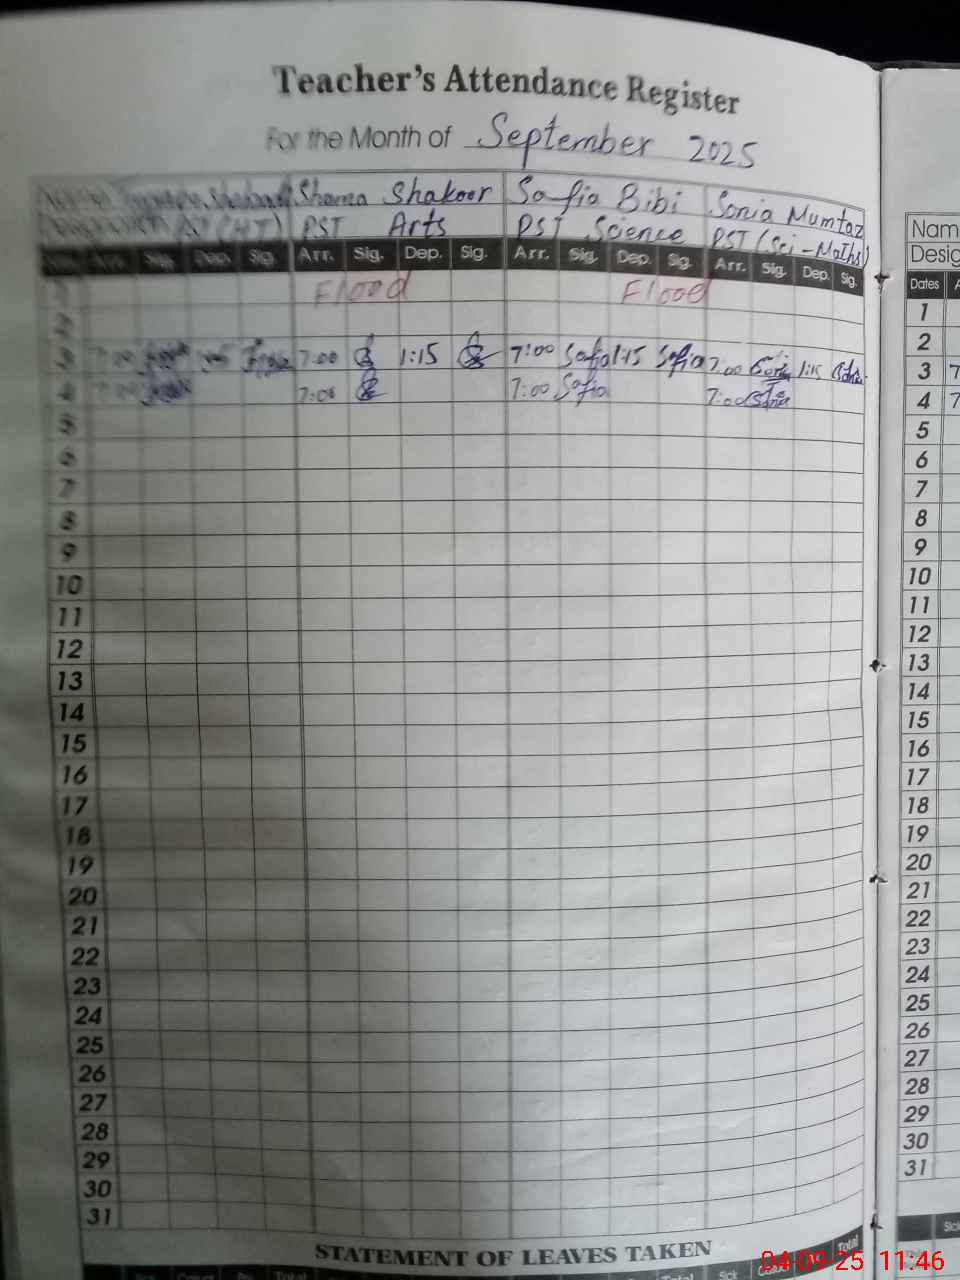 Teacher's Attendance Register
For the Month of September 2025
Shama Shakoor Safia Bibi Sonia Mumtaz
PST Arts PST Science PST (Sci-Maths)
Sig. Dep. Sig. Arr. Sig. Dep. Sig. Arr. Sig. Dep. Sig. Arr. Sig. Dep. Sig.
Flood Flood
3 7:00 1:15 7:00 Safia 1:15 Safia 7:00 1:15
4 7:00 7:00 Safia 7:00
5
6
7
8
9
10
11
12
13
14
15
16
17
18
19
20
21
22
23
24
25
26
27
28
29
30
31
STATEMENT OF LEAVES TAKEN
Total Total Sick Total
Nam
Desig
Dates A
1
2
3 7
4 7
5
6
7
8
9
10
11
12
13
14
15
16
17
18
19
20
21
22
23
24
25
26
27
28
29
30
31
04-09-25 11:46